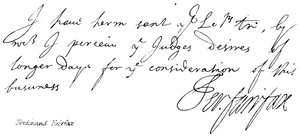 I have herin sent yu Le Prs tre, by
wch I perceive ye Judges desires of
longer Days for ye consideration of this
business
Fer. fairfax
Ferdinand Fairfax